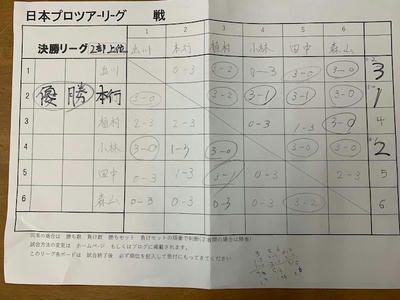 日本プロツアーリーグ 戦
決勝リーグ 2部上位
1 2 3 4 5 6
出川 本行 植村 小林 田中 森山
1 出川 0-3 3-2 0-3 3-0 3-0 3
2 優勝 本行 3-0 3-2 3-1 3-1 3-0 1
3 植村 2-3 2-3 0-3 1-3 3-0 4
4 小林 3-0 1-3 3-0 3-0 3-0 2
5 田中 0-3 1-3 3-1 0-3 2-3 5
6 森山 0-3 0-3 0-3 0-3 3-2 6
同率の場合は 勝ち数 負け数 勝ちセット 負けセットの順番で判断(2者間の場合は勝者)
試合方法の変更は ホームページ もしくはブログに掲載されます。
このリーグ表ボードは 試合終了後 必ず順位を記入して受付にもってきてください